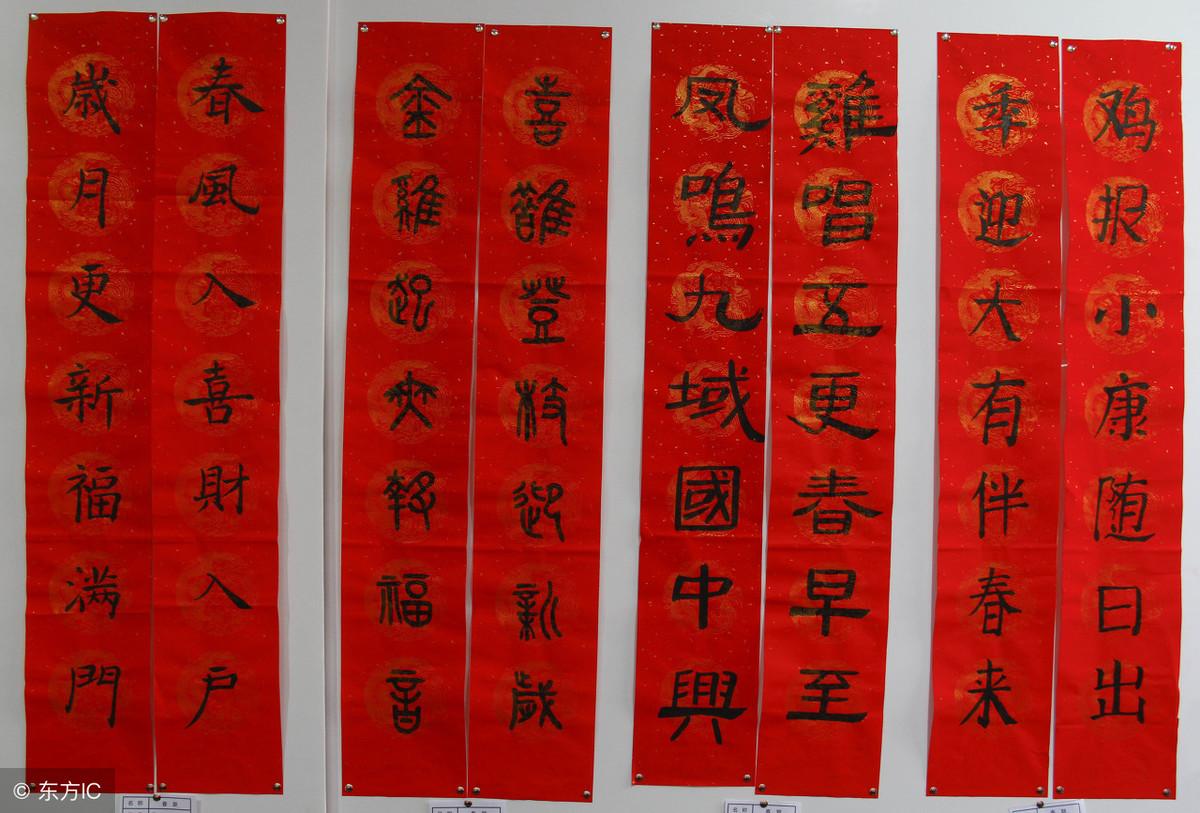 鸡报小康随日出
秊迎大有伴春来
雞唱五更春早至
凤鳴九域國中興
喜鵲登枝迎新歲
金雞起舞報福音
春風入喜財入户
歲月更新福满門
© 东方IC